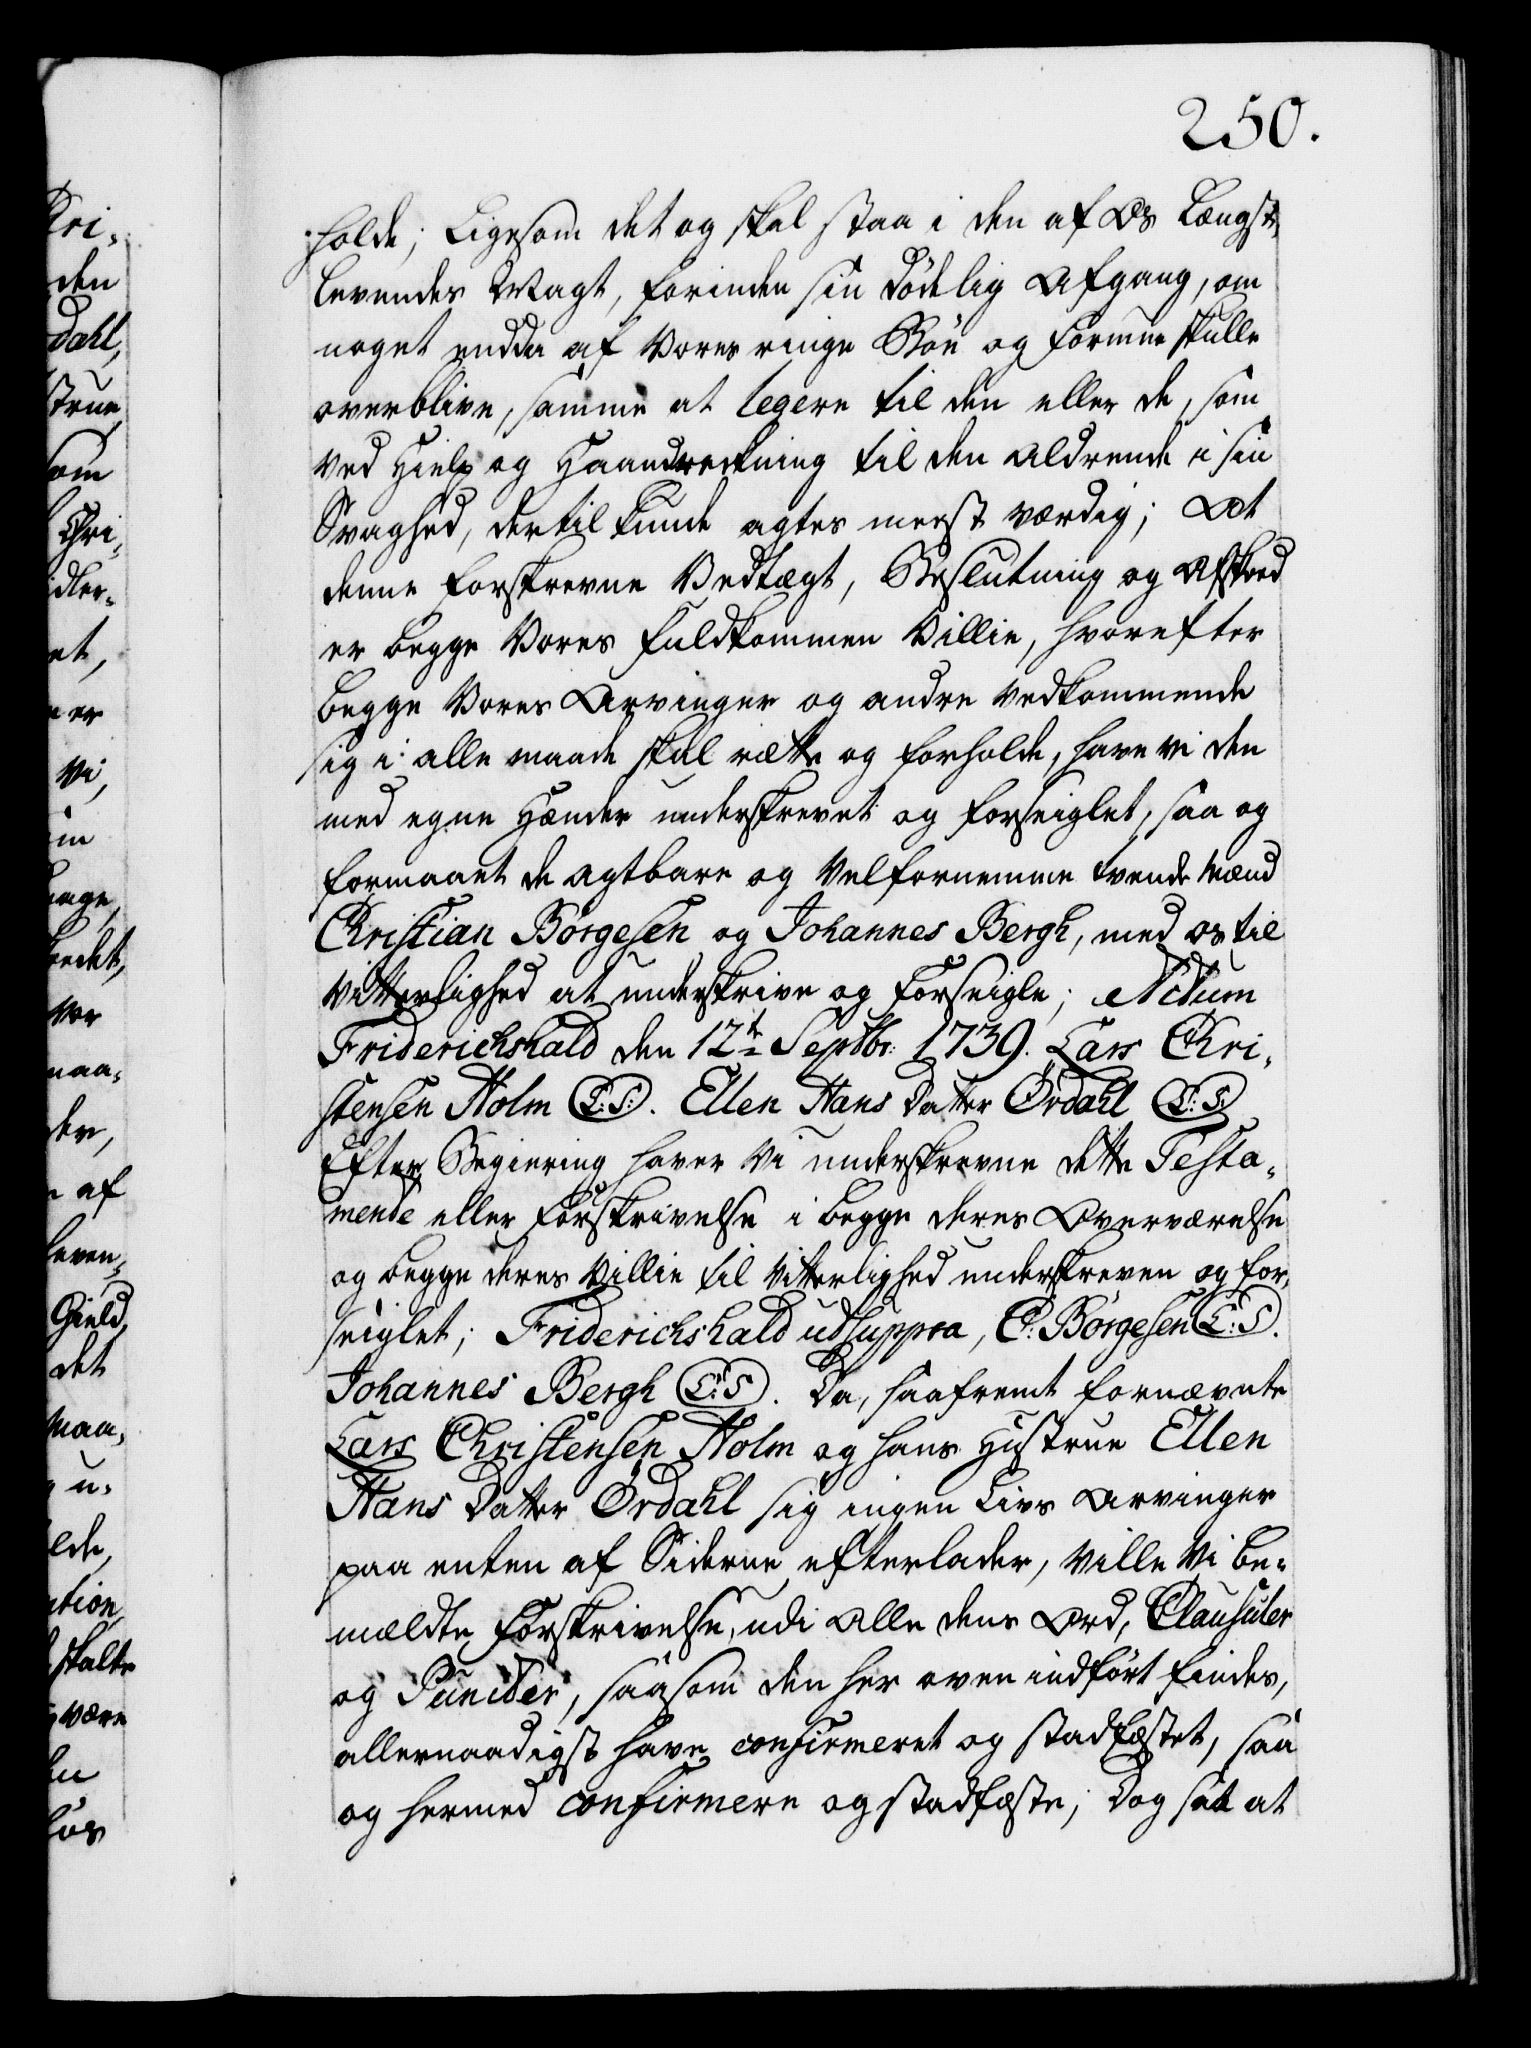 250.
holde; Ligesom det og skal staa i den af Os Længst-
levendes Magt, forinden sin dödelig Afgang, om
noget endda af Vores ringe Boe og formue skulle
overblive, samme at legere til den eller de, som
ved Hielp og Haandreckning til den aldrende i sin
Svaghed, dertil kunde agtes meest værdig; At
denne forskrevne Vedtægt, Beslutning og Afskeed
er begge Vores fuldkommen Villie, hvorefter
begge Vores Arvinger og andre vedkommende
sig i alle maade skal rette og forholde, have vi den
med egne Hænder underskrevet og forseiglet, saa og
formaaet de agtbare og Velfornemme tvende Mænd
Christian Börgesen og Johannes Bergh, med os til
vitterlighed at underskrive og forseigle; Actum
Friderichshald den 12te Septbr: 1739. Lars Chri-
stensen Holm (L:S:). Ellen Hans Datter Ördahl (L:S:)
Efter Begiering haver Vi underskrevne dette Testa-
mende eller forskrivelse i begge deres Overværelse
og begge deres Villie til Vitterlighed underskreven og for-
seiglet; Friderichshald udsuppra, C: Börgesen (L:S).
Johannes Bergh (L:S). Da, saafremt fornævnte
Lars Christensen Holm og hans Hustrue Ellen
Hans Datter Ördahl sig ingen Livs Arvinger
paa enten af Siderne efterlader, Ville Vi be-
mældte forskrivelse, udi alle dens Ord, Clausuler
og Puncter, saasom den her oven indfört findes,
allernaadigst have confirmeret og stadfæstet, saa
og hermed confirmere og stadfæste; Dog saa at